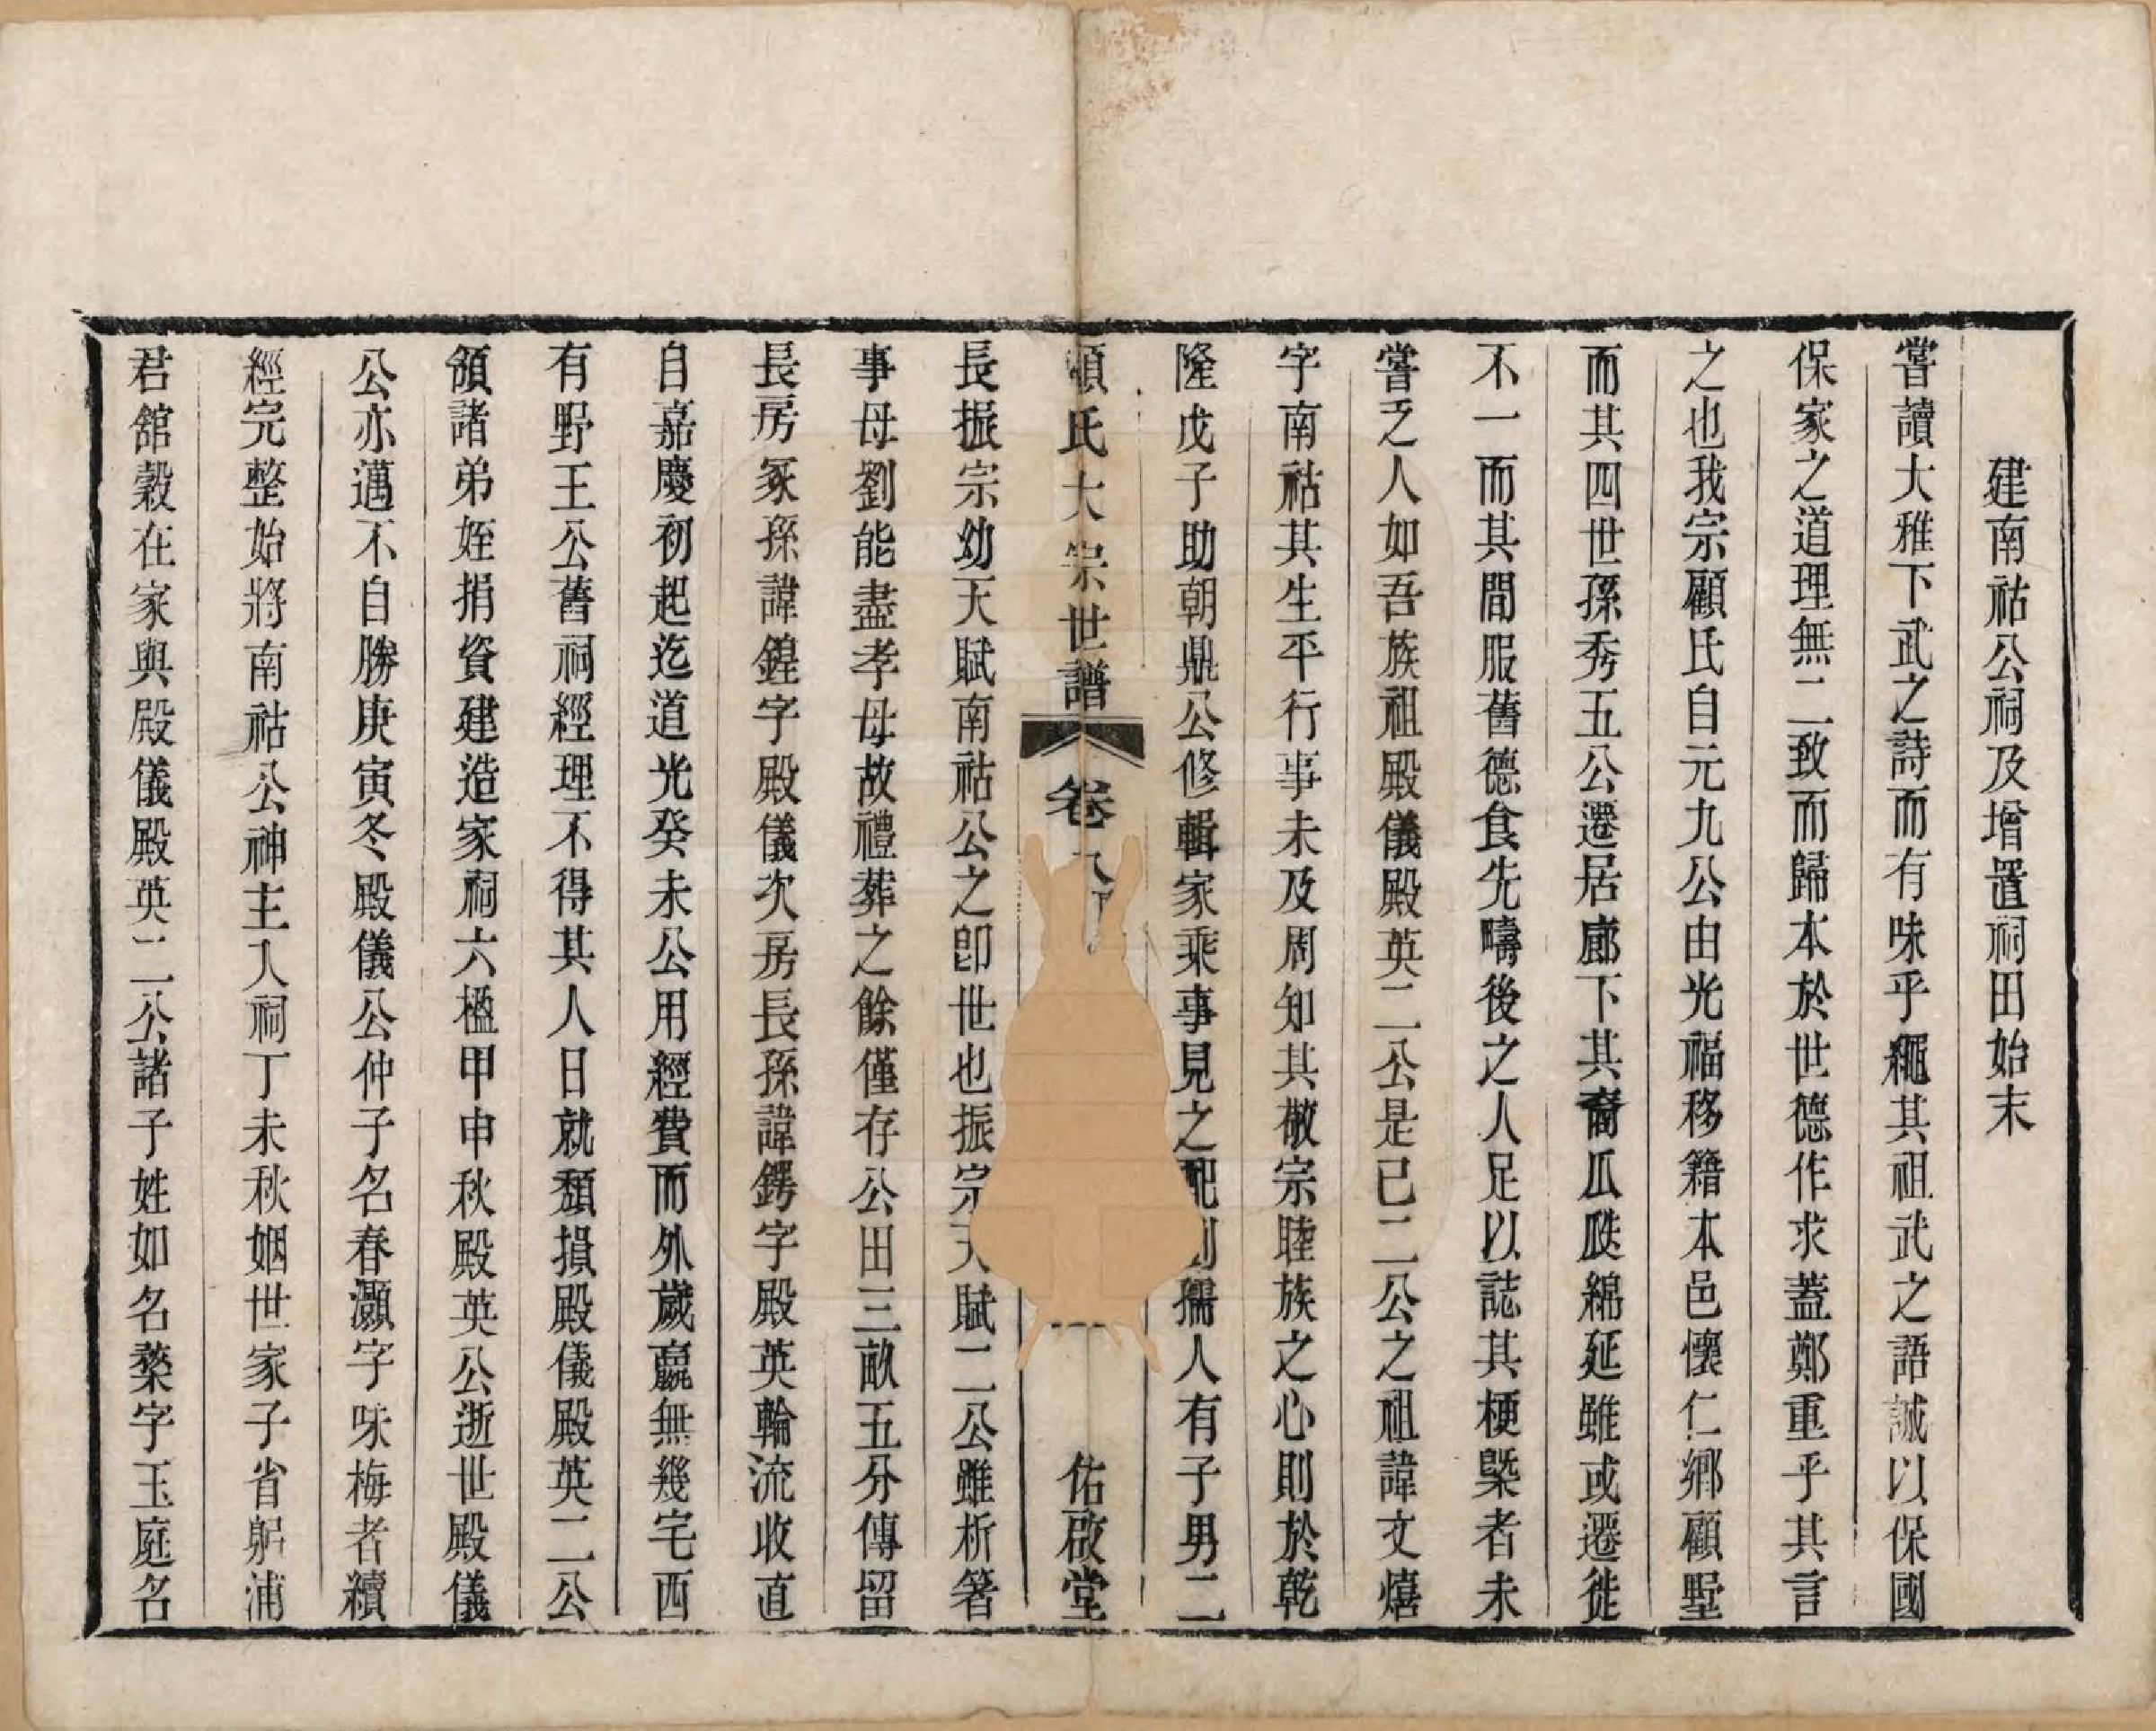 建南祜公祠及增置祠田始末
嘗讀大雅下武之詩而有味乎繩其祖武之語誠以保國
保家之道理無二致而歸本於世德作求蓋鄭重乎其言
之也我宗顧氏自元九公由光福移籍本邑懷仁鄉顧墅
而其四世孫秀五公遷居廊下其裔瓜瓞綿延雖或遷徙
不一而其間服舊德食先疇後之人足以誌其梗槩者未
嘗乏人如吾族祖殿儀殿英二公是已二公之祖諱文熺
字南祜其生平行事未及周知其敬宗睦族之心則於乾
隆戊子助朝鼎公修輯家乘事見之配劉孺人有子男二
顧氏大宗世譜 卷八 佑啟堂
長振宗幼天賦南祜公之卽世也振宗天賦二公雖析箸
事母劉能盡孝母故禮葬之餘僅存公田三畝五分傳留
長房冢孫諱鍠字殿儀次房長孫諱鍔字殿英輪流收直
自嘉慶初起迄道光癸未公用經費而外歲贏無幾宅西
有野王公舊祠經理不得其人日就頽損殿儀殿英二公
領諸弟姪捐資建造家祠六楹甲申秋殿英公逝世殿儀
公亦邁不自勝庚寅冬殿儀公仲子名春灝字味梅者續
經完整始將南祜公神主入祠丁未秋姻世家子省躬浦
君舘穀在家與殿儀殿英二公諸子姓如名蘂字玉庭名